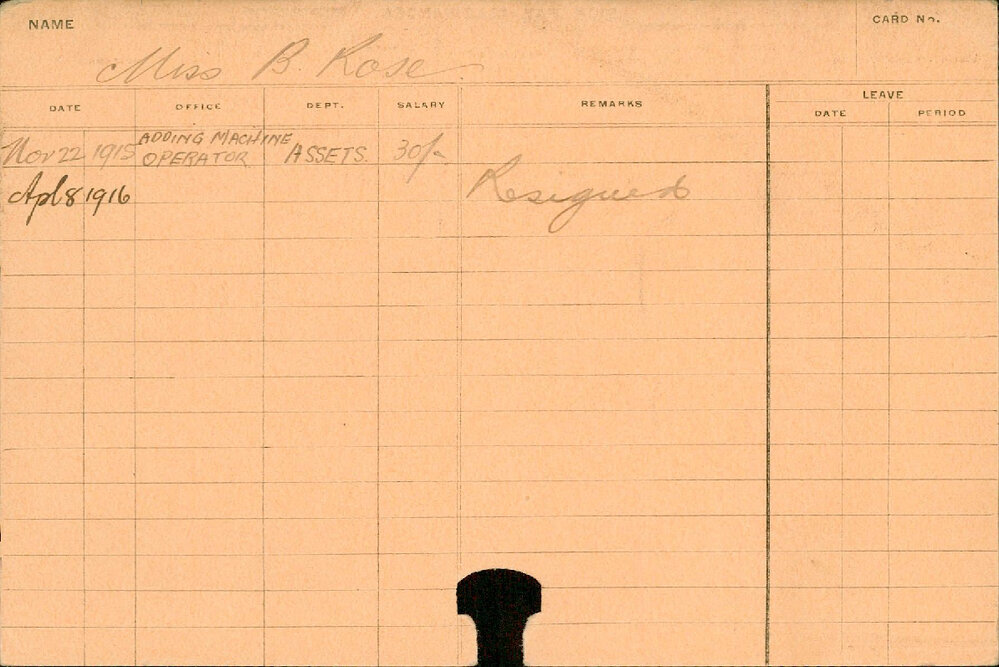 NAME
CARD No.
Miss B. Rose
DATE OFFICE DEPT. SALARY REMARKS LEAVE
DATE PERIOD
Nov 22 1915 ADDING MACHINE OPERATOR ASSETS. 30/-
Apl 8 1916 Resigned